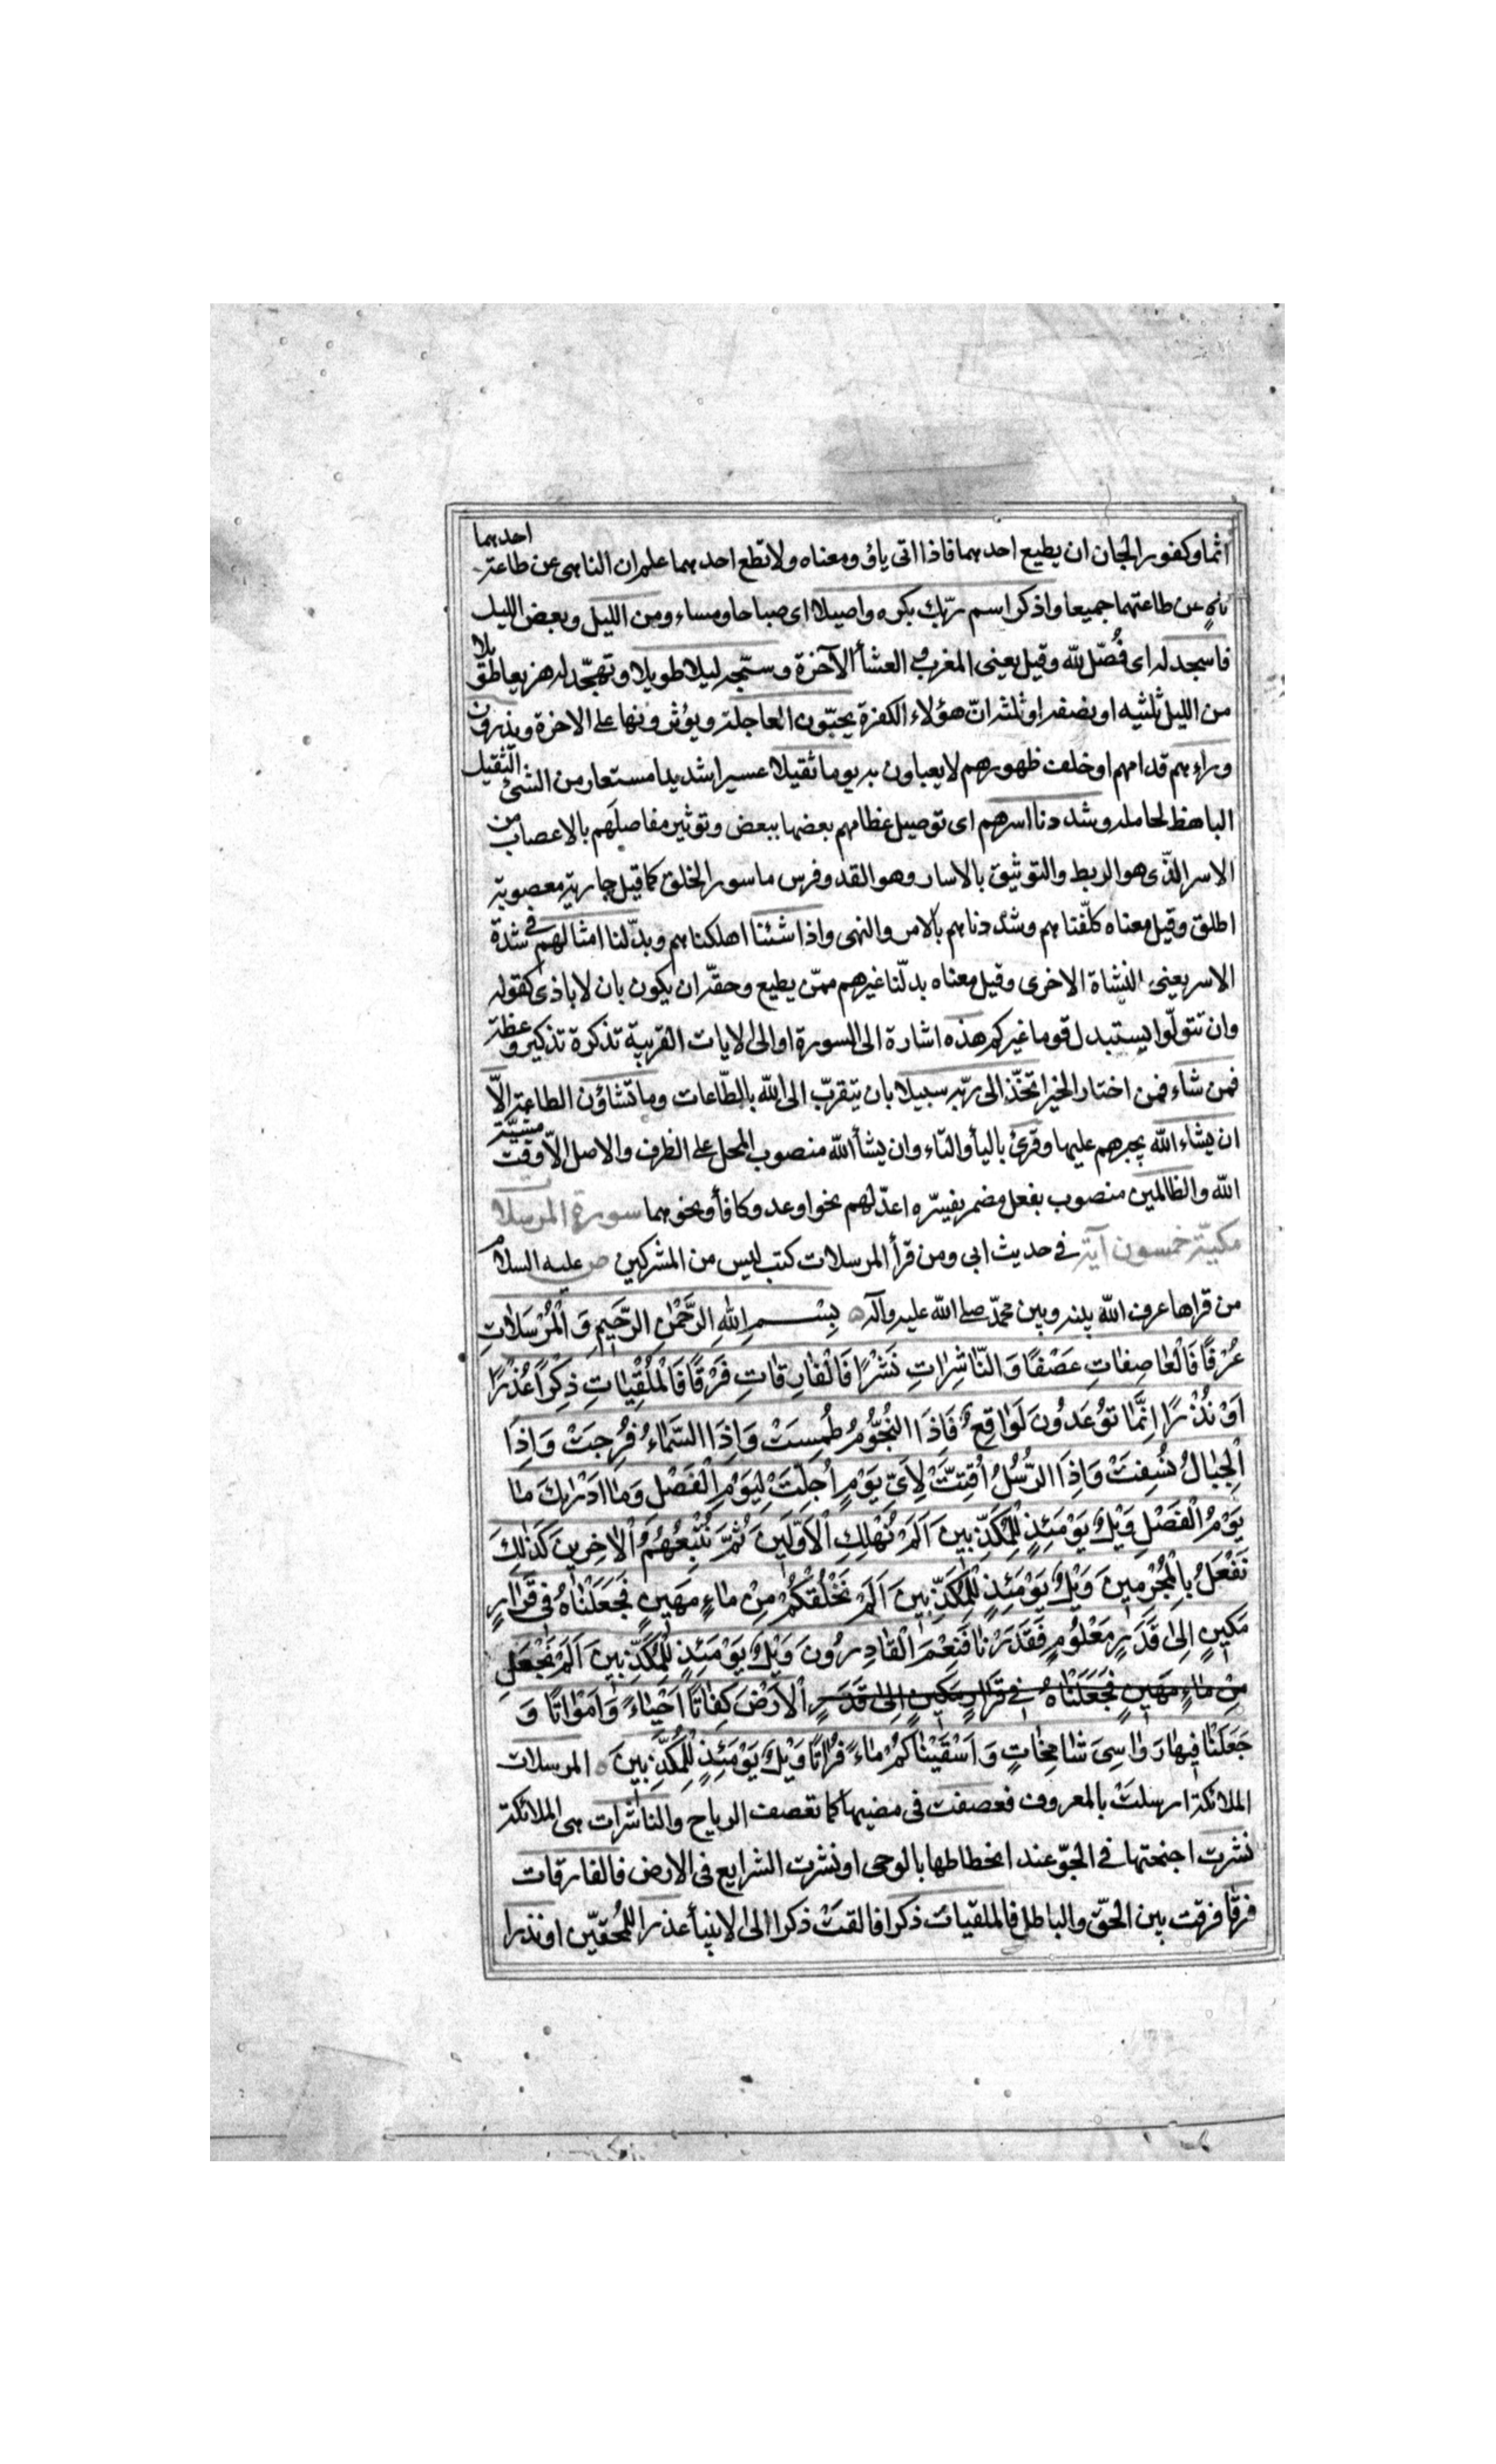 اثما وكفورا لجان ان يطيع احدهما فاذا اتى ياؤ ومعناه ولا تطع احدهما علم ان الناهى عن طاعة احدهما
ناهٍ عن طاعتهما جميعا واذكر اسم ربّك بكره واصيلا اى صباحا ومساء ومن الليل وبعض الليل
فاسجد له اى فُصّل لله وقيل يعنى المغرب والعشأ الآخرة وستجه ليلا طويلا وتهجّد له هزيعا طويلا
من الليل ثلثيه او نصفه او ثلثه انّ هؤلاء الكفرة يحبّون العاجلة ويؤثرونها على الاخرة ويذرون
وراءهم قدامهم او خلف ظهورهم لا يعباون به يوما ثقيلا عسيرا شديدا مستعار من الشئ الثقيل
الباهظ لحامله وشددنا اسرهم اى توصيل عظامهم بعضها ببعض وتوثير مفاصلهم بالاعصاب من
الاسر الذّى هو الربط والتوثيق بالاسار وهو القد وفرس ماسور الخلق كما قيل جارية معصوبة
اطلق وقيل معناه كلّفناهم وشددناهم بالامر والنهى واذا شئنا اهلكناهم وبدّلنا امثالهم فى شدة
الاسر يعنى النشاة الاخرى وقيل معناه بدلّنا غيرهم ممّن يطيع وحقّه ان يكون بان لا باذى كقوله
وان تتولّوا يستبدل قوما غيركم هذه اشارة الى السورة او الى لايات القريبة تذكرة تذكير وعظة
فمن شاء فمن اختار الخير اتخّذ الى ربّه سبيلا بان يتقرّب الى الله بالطّاعات وما تشاؤن الطاعة الاّ
ان يشاء الله يجبرهم عليها وقرئ باليأ والتاء وان يشأ الله منصوب المحل على الظرف والاصل الاّ وقت مشيّة
الله والظالمين منصوب بفعل مضمر يفسّره اعدّ لهم نحو اوعد وكافأ ونحوهما سورة المرسلات
مكيّة خمسون آية فى حديث ابى ومن قرأ المرسلات كتب ليس من المشركين ص عليه السلام
من قراها عرف الله بينه وبين محمّد صلى الله عليه وآله بِسْــمِ اللهِ الرَّحْمٰنِ الرَّحِيمِ وَالْمُرْسَلاٰتِ
عُرْفًا فَالْعٰاصِفٰاتِ عَصْفًا وَالنّٰاشِرٰاتِ نَشْرًا فَالْفٰارِقٰاتِ فَرْقًا فَالْمُلْقِيٰاتِ ذِكْرًا عُذْرًا
اَوْ نُذْرًا اِنَّمٰا تُوعَدُونَ لَوٰاقِعٌ فَاِذَا النُّجُومُ طُمِسَتْ وَاِذَا السَّمٰاءُ فُرِجَتْ وَاِذَا
الْجِبٰالُ نُسِفَتْ وَاِذَا الرُّسُلُ اُقِتَّتْ لِاَىِّ يَوْمٍ اُجِلَتْ لِيَوْمِ الْفَصْلِ وَمٰا اَدْرٰاكَ مٰا
يَوْمُ الْفَصْلِ وَيْلٌ يَوْمَئِذٍ لِلْمُكَذِّبِينَ اَلَمْ نُهْلِكِ الْاَوَّلِينَ ثُمَّ نُتْبِعُهُمُ الْاٰخِرِينَ كَذٰلِكَ
نَفْعَلُ بِالْمُجْرِمِينَ وَيْلٌ يَوْمَئِذٍ لِلْمُكَذِّبِينَ اَلَمْ نَخْلُقْكُمْ مِنْ مٰاءٍ مَهِينٍ فَجَعَلْنٰاهُ فِى قَرٰارٍ
مَكِينٍ اِلىٰ قَدَرٍ مَعْلُومٍ فَقَدَرْنٰا فَنِعْمَ الْقٰادِرُونَ وَيْلٌ يَوْمَئِذٍ لِلْمُكَذِّبِينَ اَلَمْ نَجْعَلِ
مِنْ مٰاءٍ مَهِينٍ فَجَعَلْنٰاهُ فِى قَرٰارٍ مَكِينٍ اِلىٰ قَدَرٍ الْاَرْضَ كِفٰاتًا اَحْيٰاءً وَاَمْوٰاتًا وَ
جَعَلْنٰا فِيهٰا رَوٰاسِىَ شٰامِخٰاتٍ وَاَسْقَيْنٰاكُمْ مٰاءً فُرٰاتًا وَيْلٌ يَوْمَئِذٍ لِلْمُكَذِّبِينَ المرسلات
الملائكة ارسلتْ بالمعروف فعصفت فى مضيها كما تعصف الرياح والناشرات هى الملائكة
نشرت اجنحتها فى الجوّ عند انحطاطها بالوحى او نشرت الشرايع فى الارض فالفارقات
فرقًا فرقت بين الحقّ والباطل فالملقيات ذكرا فالقتْ ذكرا الى لانبيأ عذرا للمُحقّين او نذرا